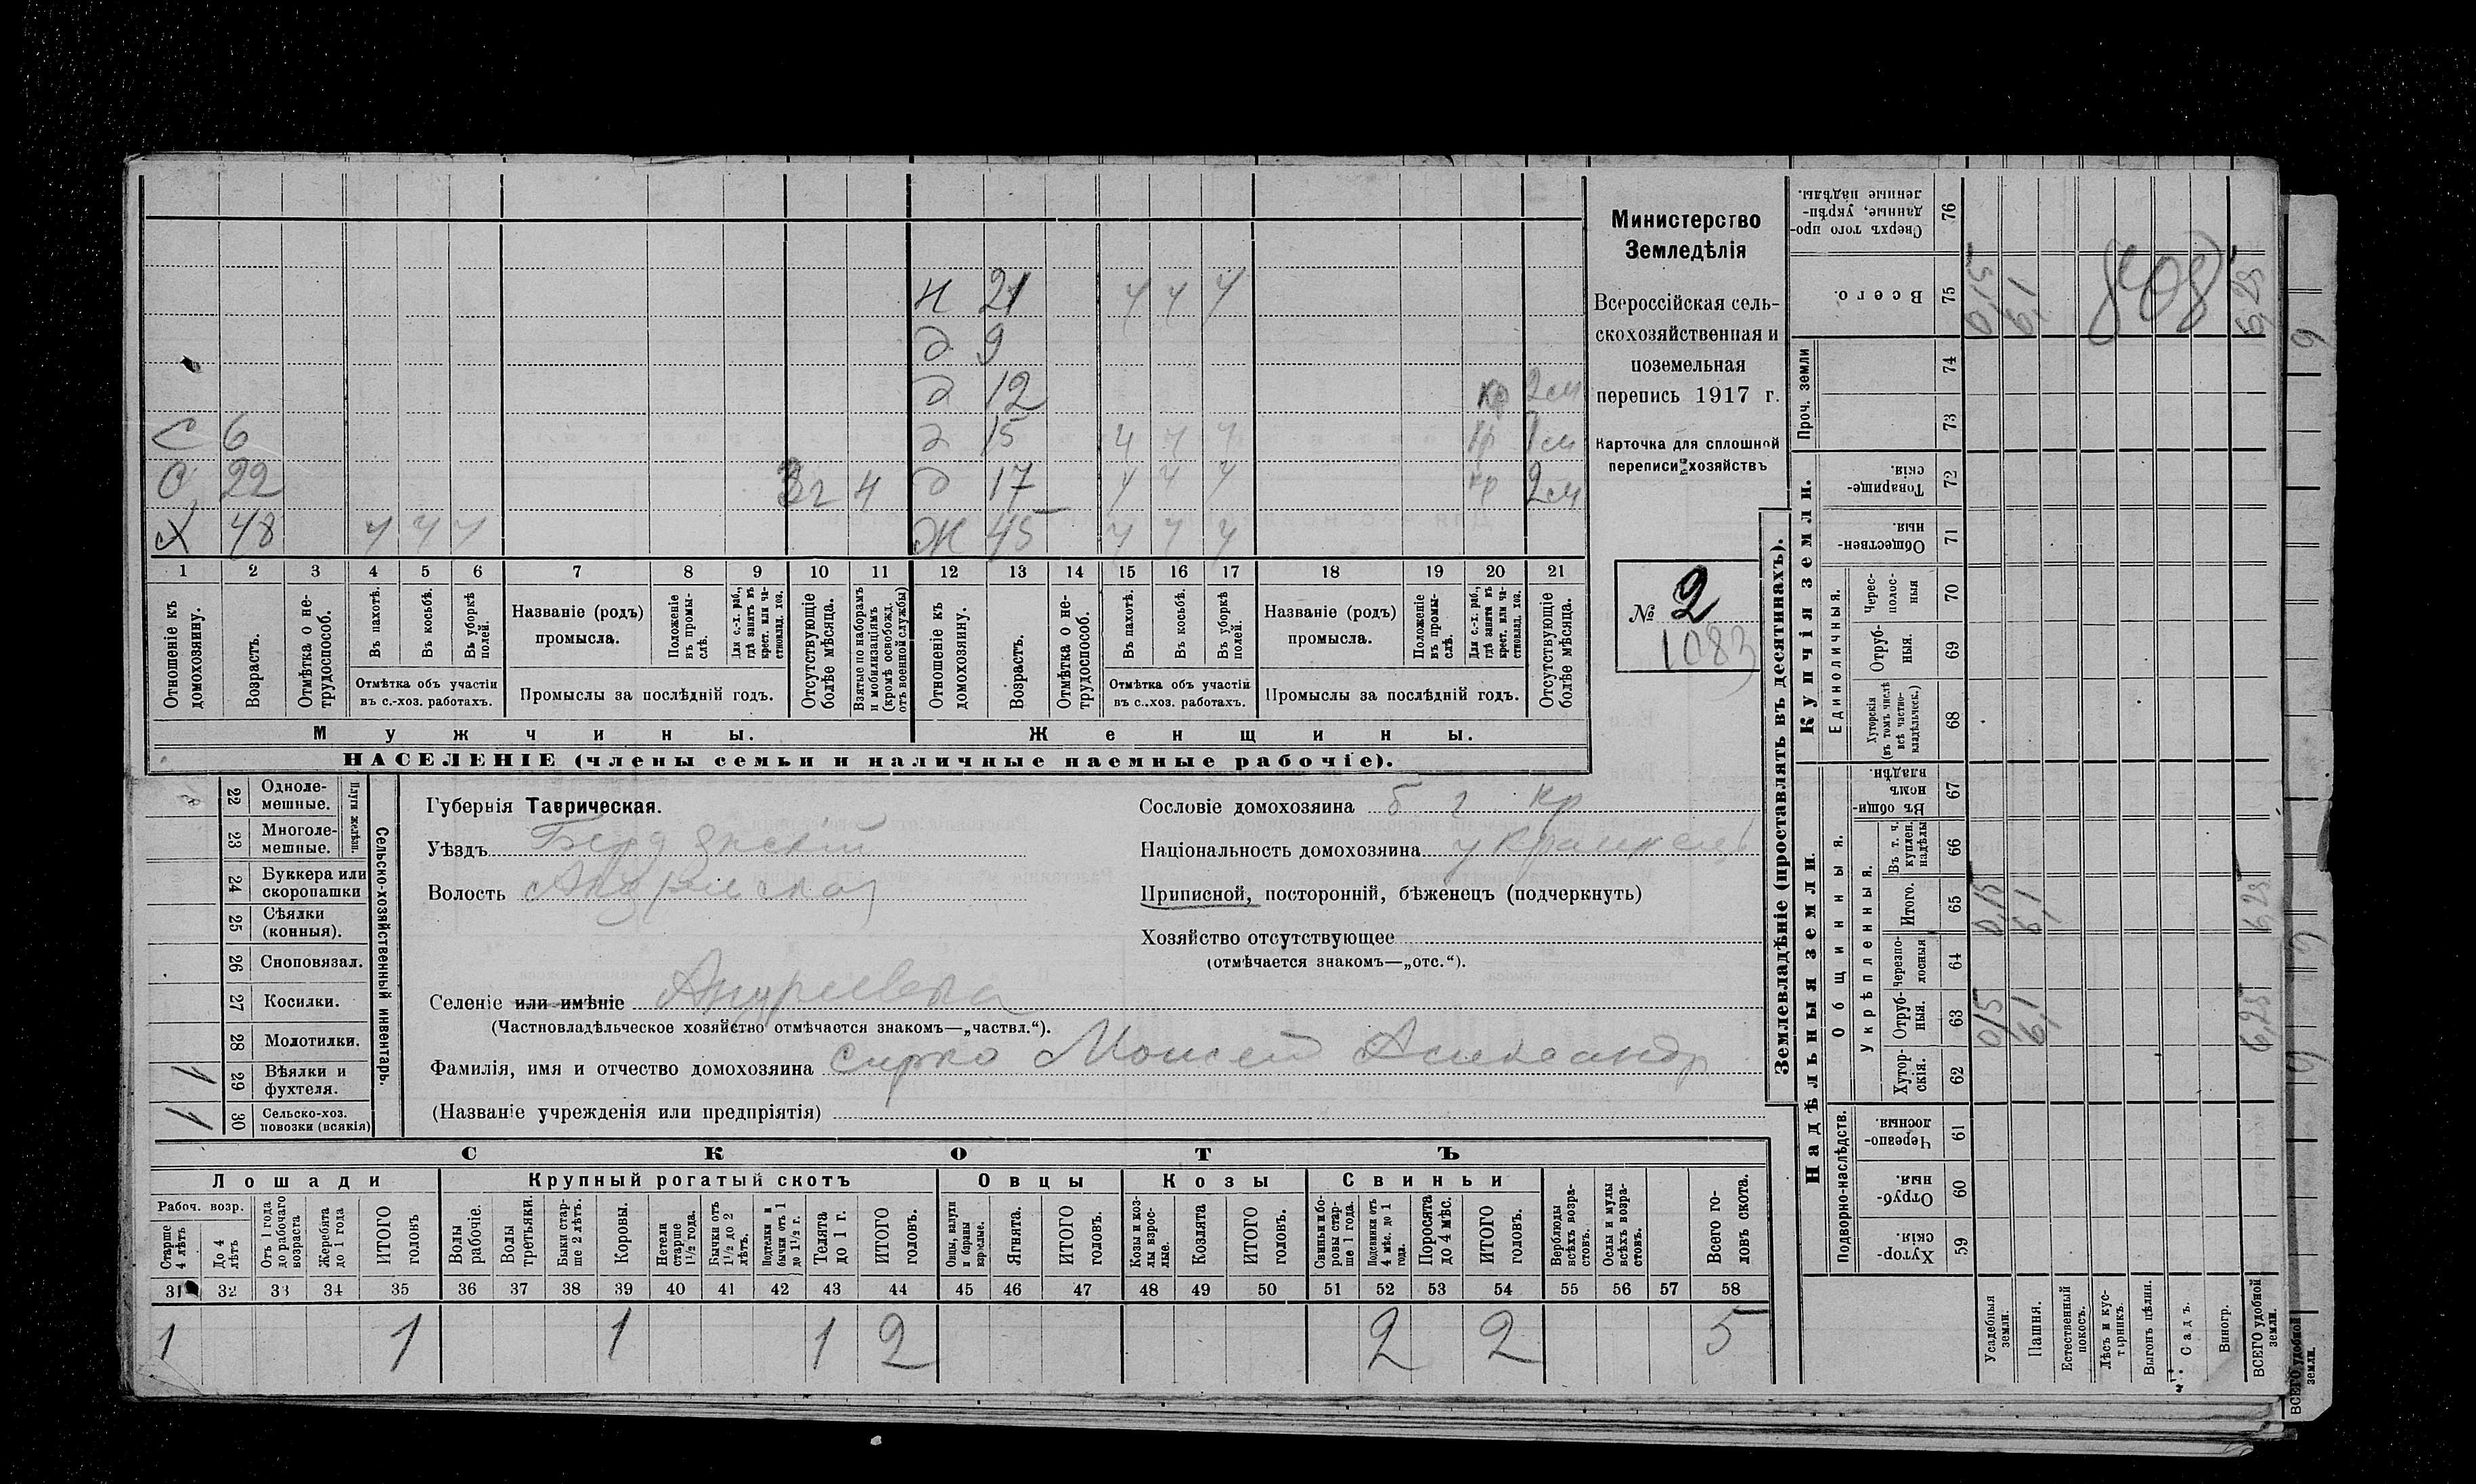 н 21 ч ч ч
д 9
д 12 кр 2 см
С 6 д 15 ч ч ч кр 1 см
С 22 3 г ч д 17 ч ч ч кр 2 см
Х 48 ч ч ч Ж 45 ч ч ч
1 2 3 4 5 6 7 8 9 10 11 12 13 14 15 16 17 18 19 20 21
Отношеніе къ домохозяину.
Возрастъ.
Отмѣтка о не-трудоспособ.
Въ пахотѣ.
Въ косьбѣ.
Въ уборкѣ полей.
Отмѣтка объ участіи
въ с.-хоз. работахъ.
Названіе (родъ)
промысла.
Положеніе въ промы-слѣ.
Для с.-х. раб., гдѣ занятъ въ крест. или ча-стновлад. хоз.
Промыслы за послѣдній годъ.
Отсутствующіе болѣе мѣсяца.
Взятые по наборамъ и мобилизаціямъ (кромѣ освобожд. отъ военной службы)
Отношеніе къ домохозяину.
Возрастъ.
Отмѣтка о не-трудоспособ.
Въ пахотѣ.
Въ косьбѣ.
Въ уборкѣ полей.
Отмѣтка объ участіи
въ с.-хоз. работахъ.
Названіе (родъ)
промысла.
Положеніе въ промы-слѣ.
Для с.-х. раб., гдѣ занята въ крест. или ча-стновлад. хоз.
Промыслы за послѣдній годъ.
Отсутствующіе болѣе мѣсяца.
Мужчины. Женщины.
НАСЕЛЕНІЕ (члены семьи и наличные наемные рабочіе).
Министерство
Земледѣлія
Всероссійская сель-
скохозяйственная и
поземельная
перепись 1917 г.
Карточка для сплошной
переписи хозяйствъ
№ 2
1083
22 Одноле-мешные.
23 Многоле-мешные.
Плуги желѣзн.
24 Буккера или скоропашки
25 Сѣялки (конныя).
26 Сноповязал.
27 Косилки.
28 Молотилки.
1 29 Вѣялки и фухтеля.
1 30 Сельско-хоз. повозки (всякія)
Сельско-хозяйственный инвентарь.
Губернія Таврическая.
Уѣздъ Бердянскій
Волость Андреевская
Селеніе или имѣніе Андреевка
(Частновладѣльческое хозяйство отмѣчается знакомъ—„частвл.“).
Фамилія, имя и отчество домохозяина Сирко Моисей Александр
(Названіе учрежденія или предпріятія)
Сословіе домохозяина б г кр
Національность домохозяина украинецъ
Приписной, посторонній, бѣженецъ (подчеркнуть)
Хозяйство отсутствующее
(отмѣчается знакомъ—„отс.“).
СКОТЪ
Лошади Крупный рогатый скотъ Овцы Козы Свиньи
Рабоч. возр.
Старше 4 лѣтъ
До 4 лѣтъ
Отъ 1 года до рабочаго возраста
Жеребята до 1 года
ИТОГО головъ
Волы рабочіе.
Волы третьяки.
Быки стар-ше 2 лѣтъ.
Коровы.
Нетели старше 1½ года.
Бычки отъ 1½ до 2 лѣтъ.
Подтелки и бычки отъ 1 до 1½ г.
Телята до 1 г.
ИТОГО головъ.
Овцы, валухи и бараны взрослые.
Ягнята.
ИТОГО головъ.
Козы и коз-лы взрос-лые.
Козлята
ИТОГО головъ.
Свиньи и бо-ровы стар-ше 1 года.
Подсвинки отъ 4 мѣс. до 1 года.
Поросята до 4 мѣс.
ИТОГО головъ.
Верблюды всѣхъ возра-стовъ.
Ослы и мулы всѣхъ возра-стовъ.
Всего го-ловъ скота.
31 32 33 34 35 36 37 38 39 40 41 42 43 44 45 46 47 48 49 50 51 52 53 54 55 56 57 58
1 1 1 1 2 2 2 5
Землевладѣніе (проставлять въ десятинахъ).
Надѣльныя земли. Купчія земли. Проч. земли
Подворно-наслѣдств.
Общинныя.
Укрѣпленныя.
Единоличныя.
Хутор-скія. 59
Отруб-ныя. 60
Черезпо-лосныя 61
Хутор-скія. 62
Отруб-ныя. 63
Черезпо-лосныя 64
Итого. 65
Въ т. ч. куплен. надѣлы 66
Въ общин-номъ владѣн. 67
Хуторскія (въ томъ числѣ всѣ частно-владѣльческ.) 68
Отруб-ныя. 69
Черес-полос-ныя 70
Обществен-ныя. 71
Товарище-скія. 72
73
74
Всего. 75
Сверхъ того про-данные, укрѣп-ленные надѣлы. 76
Усадебныя земли. 0,15 0,15 0,15
Пашня. 6,1 6,1 6,1
Естественный покосъ.
Лѣсъ и кус-тарникъ.
Выгонъ цѣлин.
Садъ.
Виногр.
ВСЕГО удобной земли. 6,25 6,25 6,25
808
ВСЕГО удобной земли.